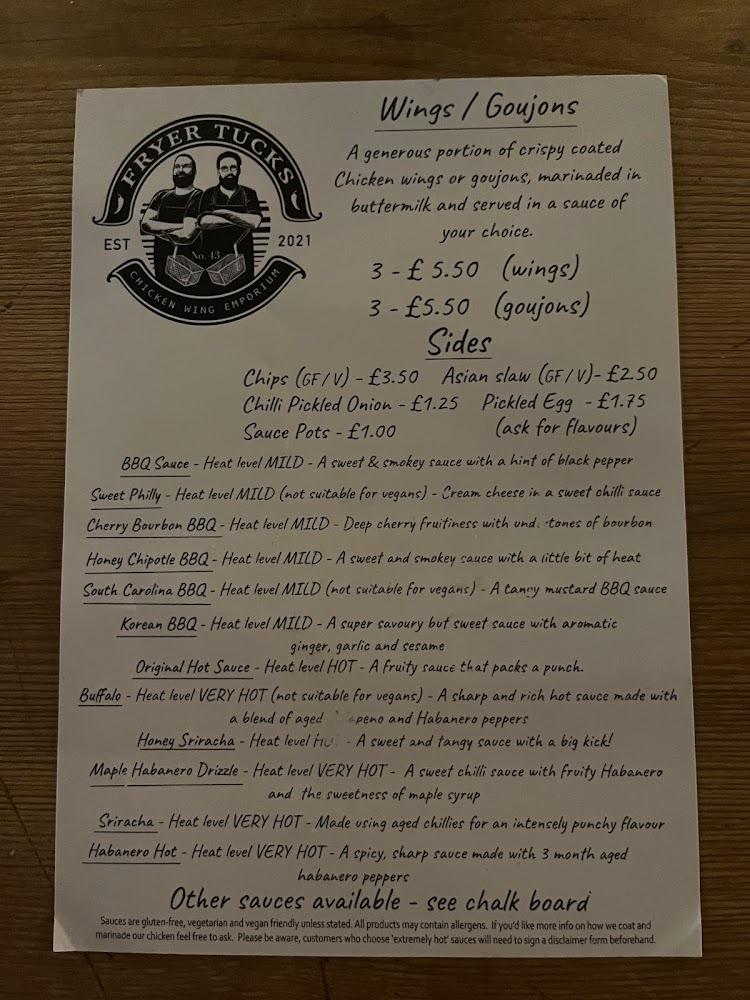 FRYER TUCKS
EST 2021
No. 43
CHICKEN WING EMPORIUM
Wings / Goujons
A generous portion of crispy coated
Chicken wings or goujons, marinaded in
buttermilk and served in a sauce of
your choice.
3 - £ 5.50 (wings)
3 - £5.50 (goujons)
Sides
Chips (GF/V) - £3.50 Asian slaw (GF/V)- £2.50
Chilli Pickled Onion - £1.25 Pickled Egg - £1.75
Sauce Pots - £1.00 (ask for flavours)
BBQ Sauce - Heat level MILD - A sweet & smokey sauce with a hint of black pepper
Sweet Philly - Heat level MILD (not suitable for vegans) - Cream cheese in a sweet chilli sauce
Cherry Bourbon BBQ - Heat level MILD - Deep cherry fruitiness with -tones of bourbon
Honey Chipotle BBQ - Heat level MILD - A sweet and smokey sauce with a little bit of heat
South Carolina BBQ - Heat level MILD (not suitable for vegans) - A tangy mustard BBQ sauce
Korean BBQ - Heat level MILD - A super savoury but sweet sauce with aromatic
ginger, garlic and sesame
Original Hot Sauce - Heat level HOT - A fruity sauce that packs a punch.
Buffalo - Heat level VERY HOT (not suitable for vegans) - A sharp and rich hot sauce made with
a blend of aged and Habanero peppers
Honey Sriracha - Heat level - A sweet and tangy sauce with a big kick!
Maple Habanero Drizzle - Heat level VERY HOT - A sweet chilli sauce with fruity Habanero
and the sweetness of maple syrup
Sriracha - Heat level VERY HOT - Made using aged chillies for an intensely punchy flavour
Habanero Hot - Heat level VERY HOT - A spicy, sharp sauce made with 3 month aged
habanero peppers
Other sauces available - see chalk board
Sauces are gluten-free, vegetarian and vegan friendly unless stated. All products may contain allergens. If you'd like more info on how we coat and
marinade our chicken feel free to ask. Please be aware, customers who choose 'extremely hot' sauces will need to sign a disclaimer form beforehand.